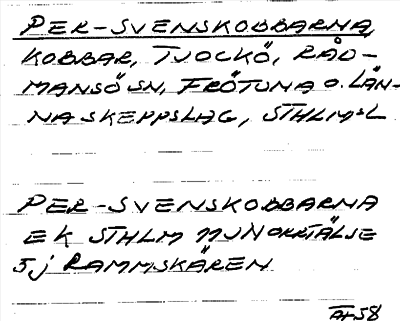 PER-SVENSKOBBARNA,
KOBBAR, TJOCKÖ, RÅD-
MANSÖ SN, FRÖTUNA O. LÄN-
NA SKEPPSLAG, STHLMS L
PER-SVENSKOBBARNA
EK STHLM 11J NORRTÄLJE
5j RAMMSKÄREN